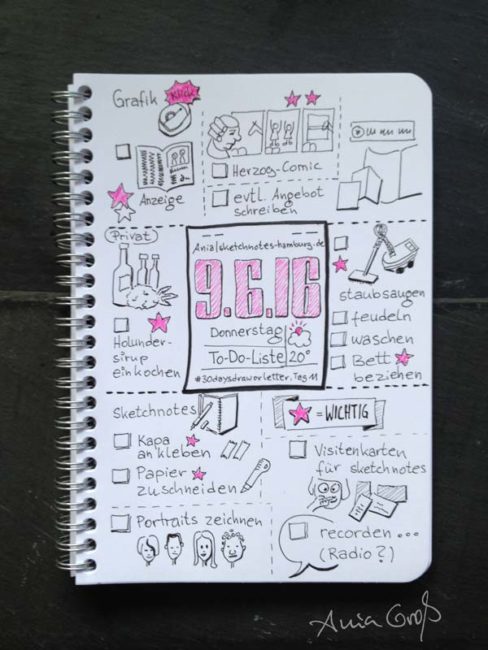 Grafik klick
Anzeige
Herzog-Comic
evtl. Angebot
schreiben
Privat
Holunder-
sirup
einkochen
Ania|sketchnotes-hamburg.de
9.6.16
Donnerstag
To-Do-Liste 20°
#30daysdraworletter, Tag 11
staubsaugen
feudeln
waschen
Bett
beziehen
Sketchnotes
Kapa
ankleben
Papier
zuschneiden
Portraits zeichnen
= WICHTIG
Visitenkarten
für sketchnotes
recorden ...
(Radio?)
Ania Groß